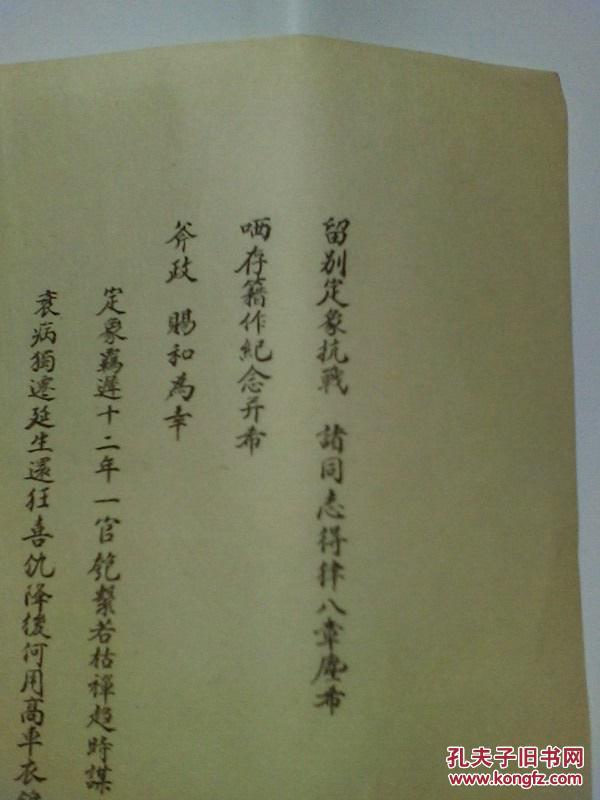 留別定象抗戰　諸同志得律八章塵布
哂存藉作紀念并希
斧政　賜和為幸
定象羈遲十二年一官匏繫若枯禪趨時謀
衰病獨遷延生還狂喜仇降後何用高車衣錦
孔夫子旧书网
www.kongfz.com